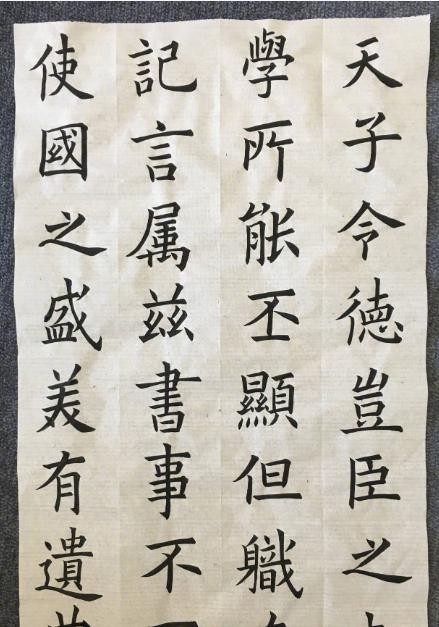 天子令德豈臣之
學所能丕顯但職
記言属兹書事不
使國之盛美有遺